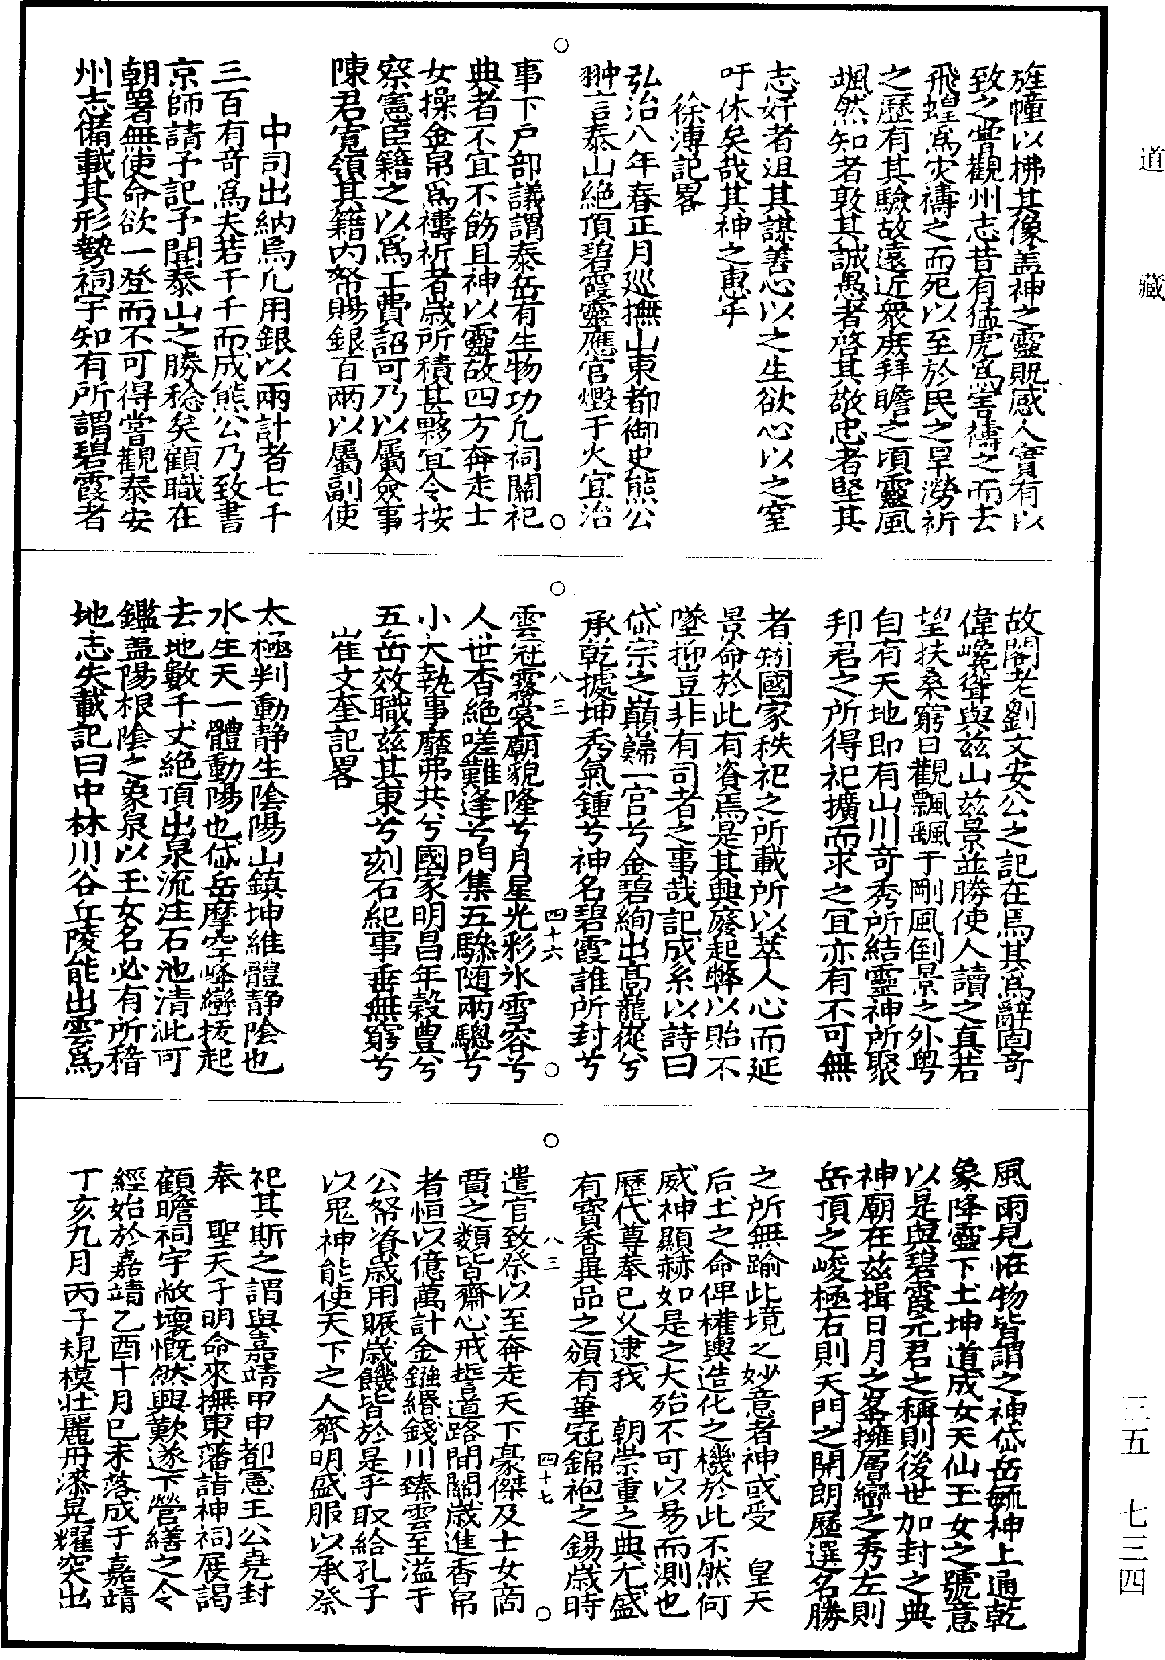 道藏
旌幢以拂其像盖神之靈貺感人實有以
致之嘗觀州志昔有猛虎爲害禱之而去
飛蝗爲灾禱之而死以至於民之旱澇祈
之歷有其驗故遠近衆庶拜瞻之頃靈風
颯然知者敦其誠愚者啓其敬忠者堅其
志好者沮其謀善心以之生欲心以之窒
吁休矣哉其神之惠乎
徐溥記畧
弘治八年春正月廵撫山東都御史熊公
翀言泰山絶頂碧霞靈應宫燬于火宜治
事下户部議謂泰岳有生物功凢祠闗祀
典者不宜不飭且神以靈故四方奔走士
女操金帛爲禱祈者歲所積甚夥宜令按
察憲臣籍之以爲工費詔可乃以屬僉事
陳君寛領其籍内帑賜銀百兩以屬副使
中司出納焉凢用銀以兩計者七千
三百有奇爲夫若干千而成熊公乃致書
京師請予記予聞泰山之勝稔矣顧職在
朝署無使命欲一登而不可得嘗觀泰安
州志備載其形勢祠宇知有所謂碧霞者
故閣老劉文安公之記在焉其爲辭固奇
偉巉聳與兹山兹景並勝使人讀之真若
望扶桑窮日觀飄飄于剛風倒景之外粤
自有天地即有山川奇秀所結靈神所聚
邦君之所得祀擴而求之宜亦有不可無
者矧國家秩祀之所載所以萃人心而延
景命於此有資焉是其興廢起弊以貽不
墜抑豈非有司者之事哉記成系以詩曰
岱宗之巔歸一宫兮金碧絢出高巃嵸兮
承乾據坤秀氣鍾兮神名碧霞誰所封兮
八三
四十六
雲冠霧裳廟貌隆兮月星光彩氷雪容兮
人世杳絶嗟難逢兮門集五驂随兩驄兮
小大執事靡弗共兮國家明昌年穀豊兮
五岳效職兹其東兮刻石紀事垂無窮兮
崔文奎記畧
太極判動静生陰陽山鎮坤維體静陰也
水生天一體動陽也岱岳摩空峰巒拔起
去地數千丈絶頂出泉流注石池清泚可
鑑盖陽根陰之象泉以玉女名必有所稽
地志失載記曰中林川谷丘陵能出雲爲
風雨見恠物皆謂之神岱岳毓神上通乾
象降靈下土坤道成女天仙玉女之號意
以是與碧霞元君之稱則後世加封之典
神廟在兹揖日月之峯擁層巒之秀左則
岳頂之峻極右則天門之開朗歷選名勝
之所無踰此境之妙意者神或受　皇天
后土之命俾權輿造化之機於此不然何
威神顯赫如是之大殆不可以易而測也
歷代尊奉已乆逮我　朝崇重之典尤盛
有寳香異品之頒有華冠錦袍之錫歲時
八三
四十七
遣官致祭以至奔走天下豪傑及士女啇
賈之類皆齋心戒誓道路間關歲進香帛
者恒以億萬計金鏹緡錢川臻雲至溢于
公帑資歲用賑歲饑皆於是乎取給孔子
以鬼神能使天下之人齊明盛服以承祭
祀其斯之謂與嘉靖甲申都憲王公堯封
奉　聖天子明命來撫東藩詣神祠展謁
顧瞻祠宇敝壞慨然興歎遂下營繕之令
經始於嘉靖乙酉十月己未落成于嘉靖
丁亥九月丙子規模壮麗丹漆晃耀突出
三五　七三四